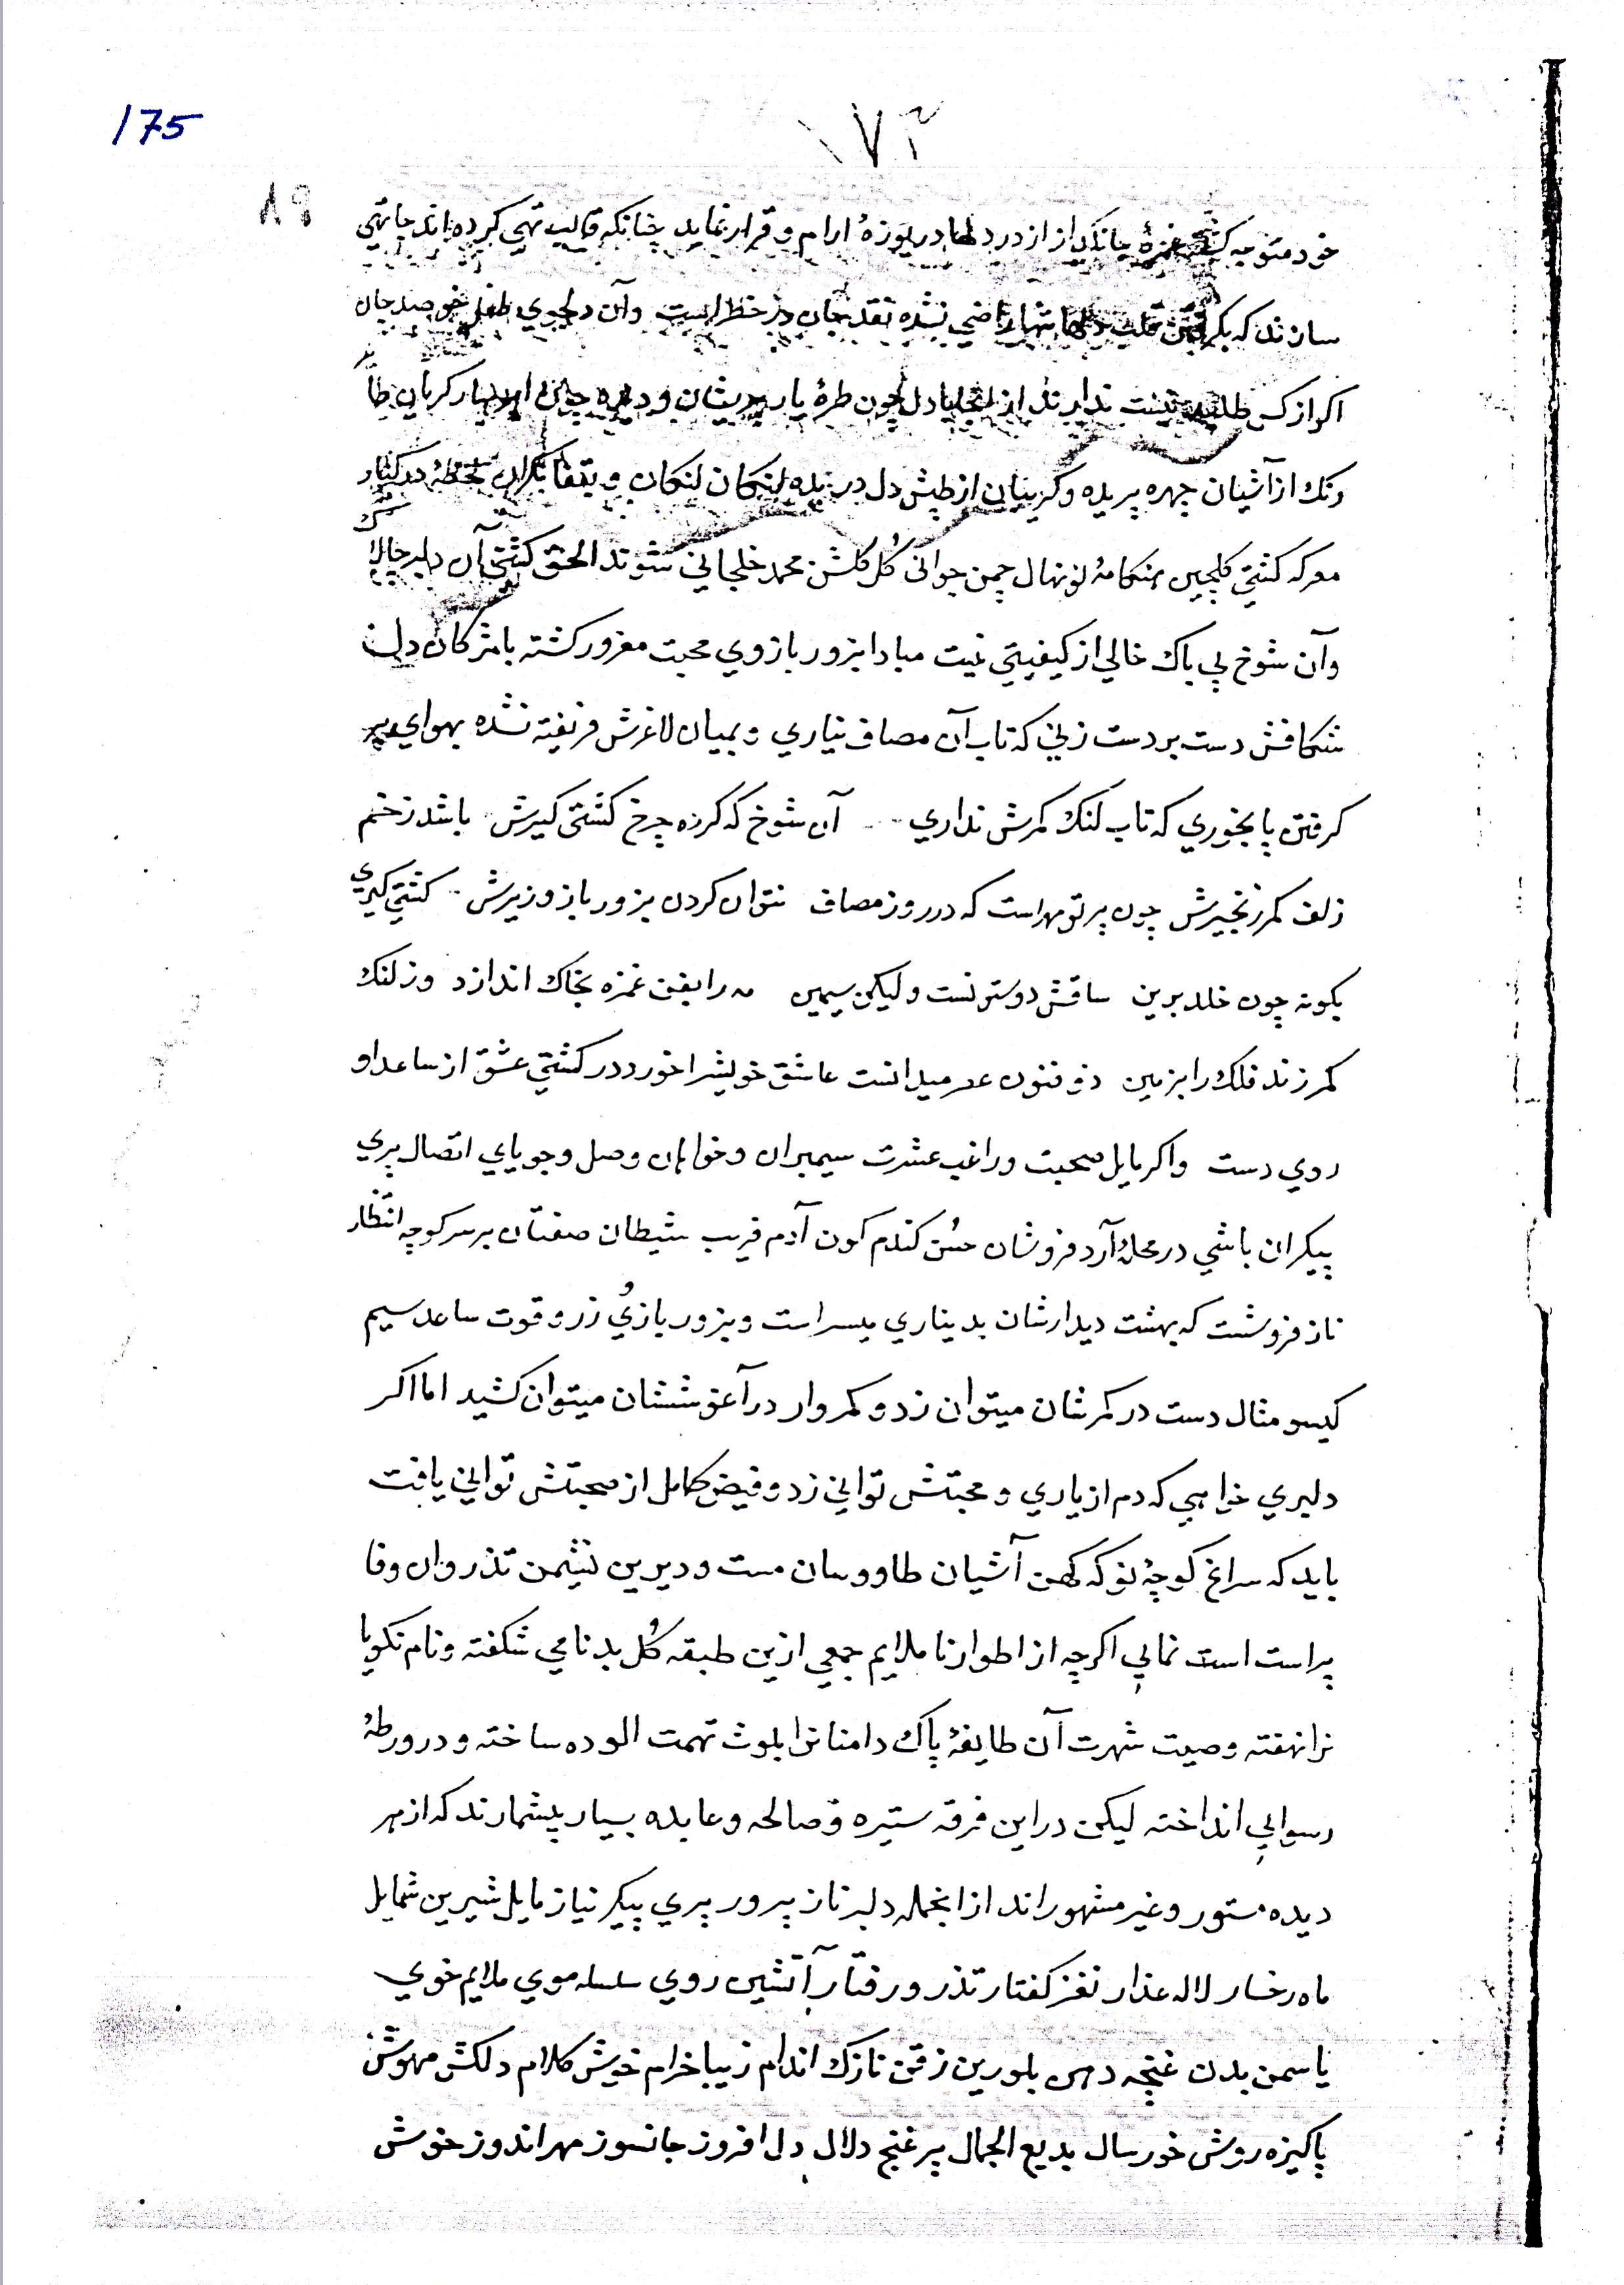 175
١٧٣
٨٩
خود متوجه کشتی غمزهٔ جانکداز از در دلها دریوزهٔ ارام و قرار نماید چنانکه قالب تهی کرده اند جا تهی
سازند که بکرفتن قلب دلها تنها راضی نشده نقد جان در خطر است وآن دلجوی طفل خو صد جان
اکر از کس طلبد نیست ندارند از انجا با دل چون طرهٔ یار پریشان و دیده چون ابر بهار کریان
رنک از آشیان چهره پریده و کریبان از طپش دل دریده لنکان لنکان و بتفا نکران لحظهٔ در کنار
معرکه کشتی کلچین هنکامهٔ نونهال چمن جوانی کُل کلشن محمد خلجانی شوند الحق کشتی آن دلبر چالاک
وآن شوخ بی باک خالی از کیفیتی نیست مبادا بزور بازوی محبت مغرور کشته با مژکان دل
شکافش دست بردست زنی که تاب آن مصاف نیاری و بمیان لاغرش فریفته نشده بهوای
کرفتن پا بخوری که تاب لنک کمرش نداری آن شوخ که کرده چرخ کشتی کیرش باشد ز خم
زلف کمر زنجیرش چون پرتو مهر است که در روز مصاف نتوان کردن بزور بازو زیرش کشتی کیری
بکونه چون خلد برین ساقش دوستونست ولیکن سیمین مه را بفن غمزه بخاک اندازد وز لنک
کمر زند فلک را بزمین ذو فنون عدمیدانست عاشق خویشرا خورد در کشتی عشق از ساعد او
روی دست واکر مایل صحبت وراغب عشرت سیمبران وخواهان وصل وجویای اتصال پری
پیکران باشی در محلهٔ آرد فروشان حسن کندم کون آدم فریب شیطان صفتان بر سر کوچه انتظار
ناز فروشست که بهشت دیدارشان بدیناری میسر است و بزور بازویُ زر وقوت ساعد سیم
کیسو مثال دست در کمرشان میتوان زد و کمروار در آغوششان میتوان کشید اما اکر
دلبری خواهی که دم از یاری و محبتش توانی زد و فیض کامل از صحبتش توانی یافت
باید که سراغ کوچهٔ نو که کهن آشیان طاووسان مست و دیرین نشیمن تذروان وفا
پراست است نمایی اکرچه از اطوار ناملایم جمعی ازین طبقه کُل بدنامی شکفته و نام نکویا
نرا نهفته وصیت شهرت آن طایفهٔ پاک دامنانرا بلوث تهمت الوده ساخته و در ورطهٔ
رسوایی انداخته لیکن در این فرقه ستیره و صالحه و عابده بسیار بیشمارند که از هر
دیده مستور و غیر مشهور اند از انجمله دلبر ناز پرور پری پیکر نیاز مایل شیرین شمایل
ماه رخسار لاله عذار نغز کفتار تذرو رفتار آتشین روی سلسله موی ملایم خوی
یاسمن بدن غنچه دهن بلورین زقن نازک اندام زیبا خرام خوش کلام دلکش مهوش
پاکیزه روش خورسال بدیع الجمال پر غنج دلال دل افروز جانسوز مهر اندوز خوش